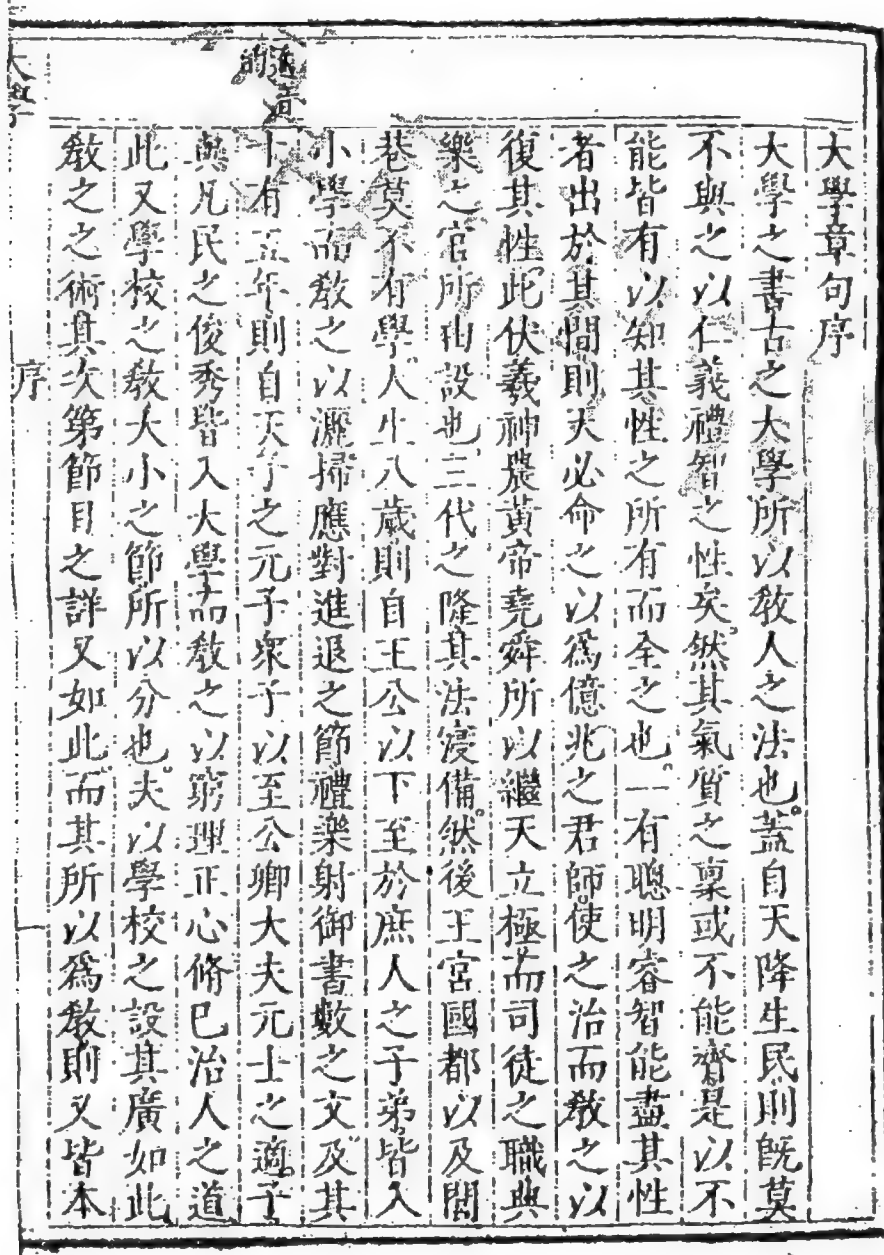 大學章句序
大學之書古之大學所以敎人之法也。蓋自天降生民則旣莫
不與之以仁義禮智之性矣。然其氣質之稟或不能齊是以不
能皆有以知其性之所有而全之也。一有聰明睿智能盡其性
者出於其間則天必命之以爲億兆之君師使之治而敎之以
復其性此伏羲神農黃帝堯舜所以繼天立極而司徒之職典
樂之官所由設也三代之隆其法寖備。然後王宮國都以及閭
巷莫不有學人生八歲則自王公以下至於庶人之子弟皆入
小學而敎之以灑掃應對進退之節禮樂射御書數之文及其
十有五年則自天子之元子衆子以至公卿大夫元士之適子
與凡民之俊秀皆入大學而敎之以窮理正心脩己治人之道
此又學校之敎大小之節所以分也。夫以學校之設其廣如此
敎之之術其次第節目之詳又如此而其所以爲敎則又皆本
適音
的
大學
序
一